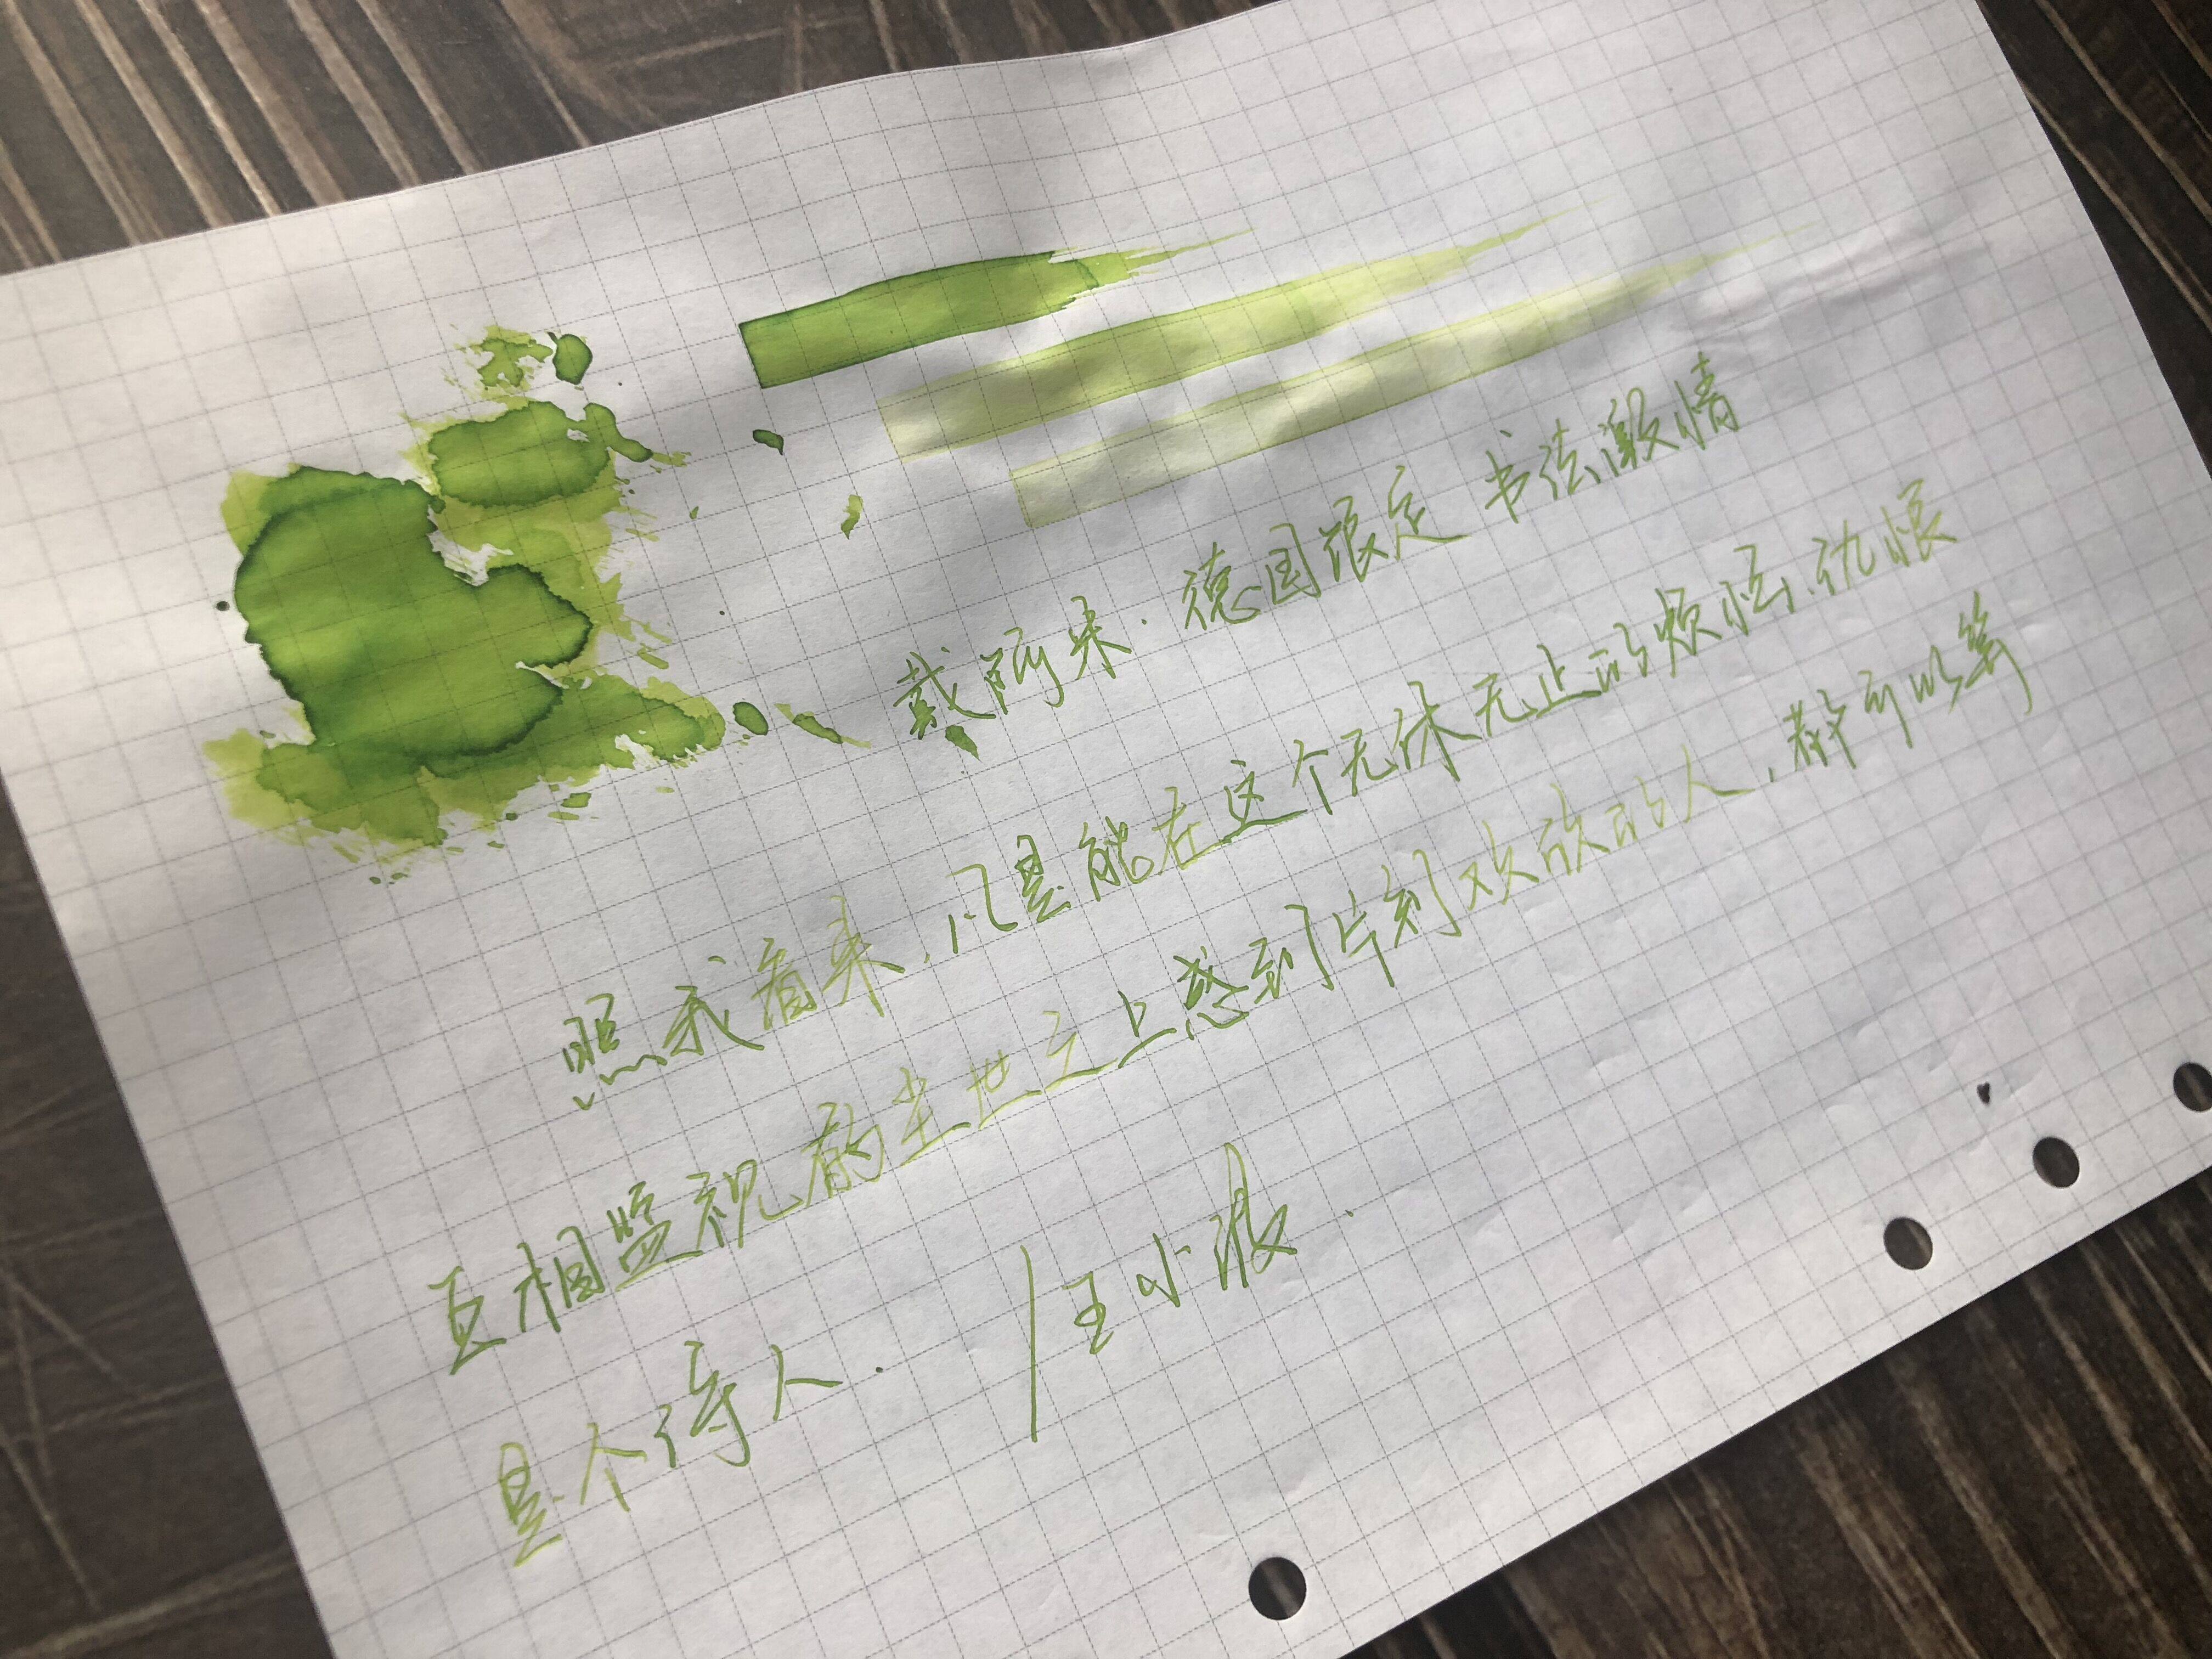 戴阿米.德国限定 书法激情
照我看来,凡是能在这个无休无止的烦恼、仇恨
互相监视的尘世之上感到片刻欢欣的人,都可以算
是个诗人.
/王小波.